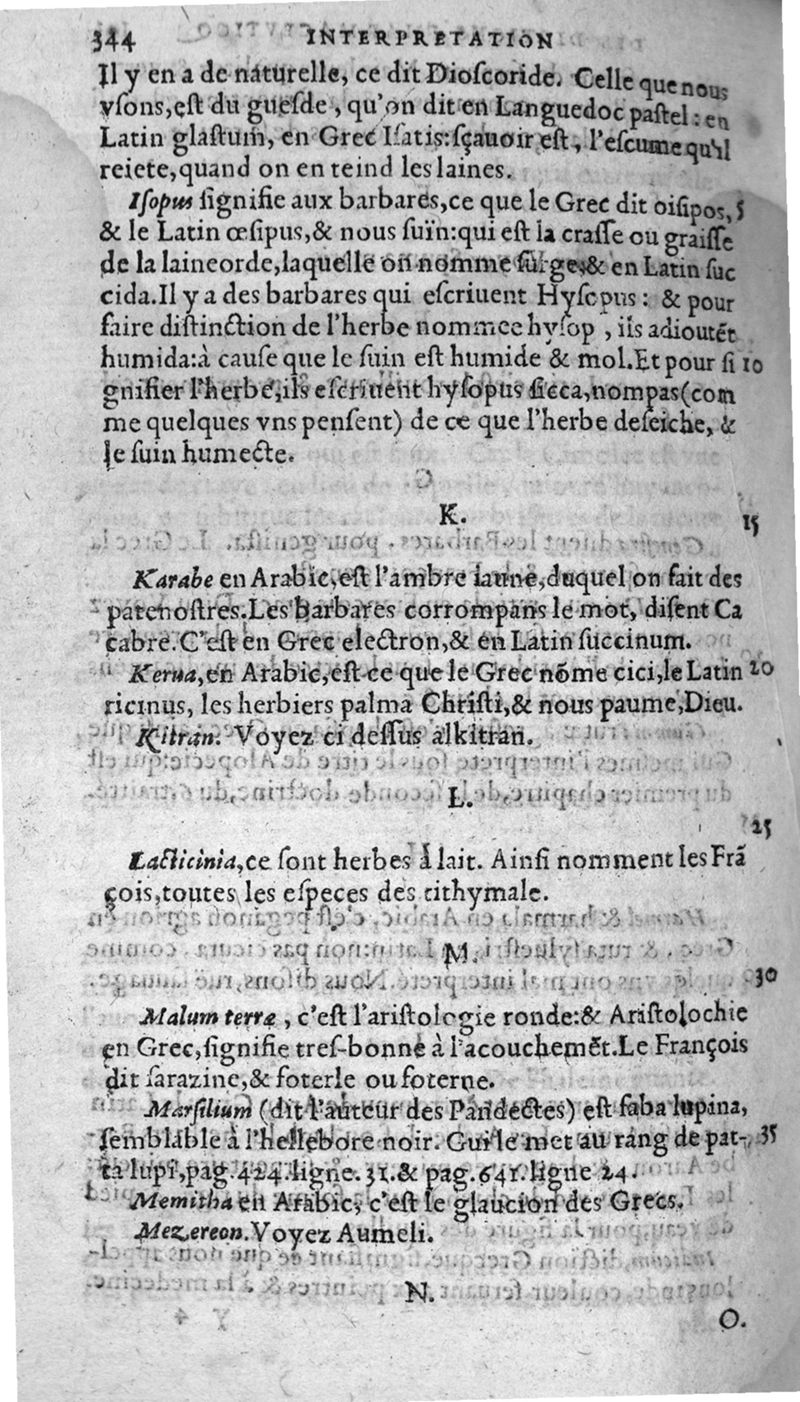 344 INTERPRETATION
Il y en a de naturelle, ce dit Dioſcoride. Celle que nous
vſons,eſt du gueſde , qu'on dit en Languedoc paſtel : en
Latin glaſtum, en Grec Iſatis:ſçauoir eſt, l'eſcume qu'il
reiete,quand on en teind les laines.
Iſopus ſignifie aux barbares,ce que le Grec dit oiſipos, 5
& le Latin œſipus,& nous ſuïn:qui eſt la craſſe ou graiſſe
de la laineorde,laquelle on nomme ſurge,& en Latin ſuc
cida.Il y a des barbares qui eſcriuent Hyſopus : & pour
faire diſtinction de l'herbe nommee hyſop , ils adioutẽt
humida:à cauſe que le ſuin eſt humide & mol.Et pour ſi 10
gnifier l'herbe,ils eſcriuent hyſopus ſicca,nompas(com
me quelques vns penſent) de ce que l'herbe deſeiche, &
le ſuin humecte.
K.
15
Karabe en Arabic,eſt l'ambre iaune,duquel on fait des
patenoſtres.Les barbares corrompans le mot, diſent Ca
cabre.C'eſt en Grec electron,& en Latin ſuccinum.
Kerua,en Arabic,eſt ce que le Grec nõme cici,le Latin 20
ricinus, les herbiers palma Chriſti,& nous paume,Dieu.
Kitran. Voyez ci deſſus alkitran.
L.
25
Lacticinia,ce ſont herbes à lait. Ainſi nomment les Frã
çois,toutes les eſpeces des tithymale.
M.
30
Malum terræ , c'eſt l'ariſtologie ronde:& Ariſtolochie
en Grec,ſignifie treſ-bonne à l'acouchemẽt.Le François
dit ſarazine,& foterle ou foterne.
Marſilium (dit l'auteur des Pandectes) eſt faba lupina,
ſemblable à l'hellebore noir. Gui le met au rang de pat- 35
ta lupi,pag.424.ligne.31.& pag.641.ligne 24.
Memitha en Arabic, c'eſt le glaucion des Grecs.
Mezereon.Voyez Aumeli.
N.
O.